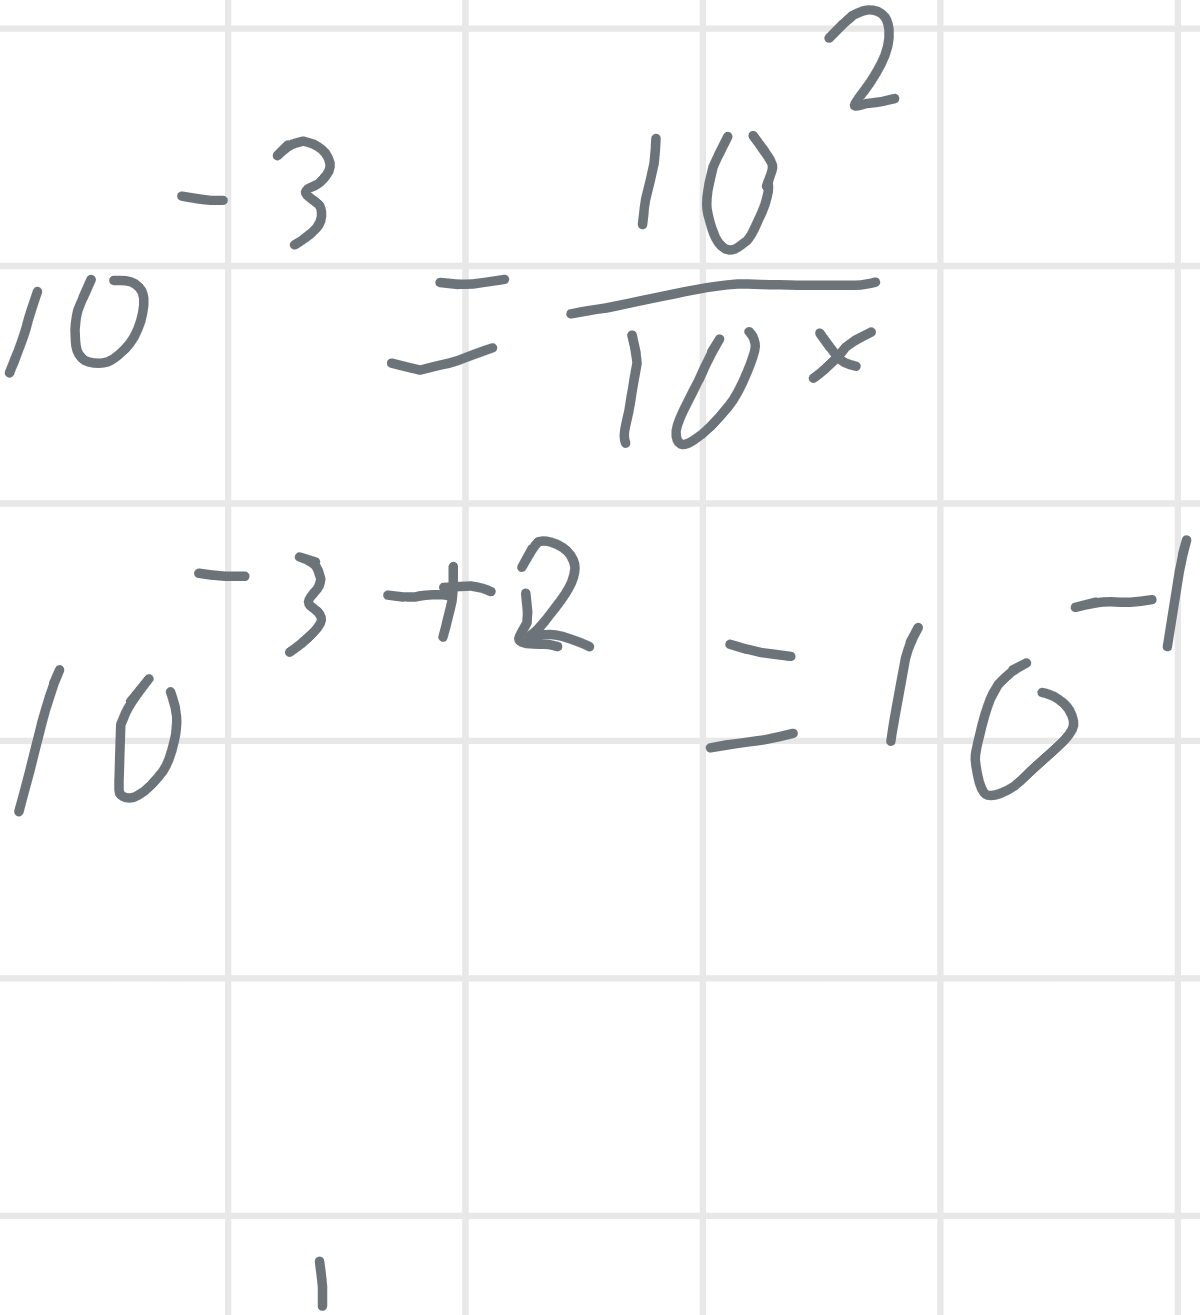 10^{-3} = \frac{10^2}{10^x}
10^{-3+2} = 10^{-1}